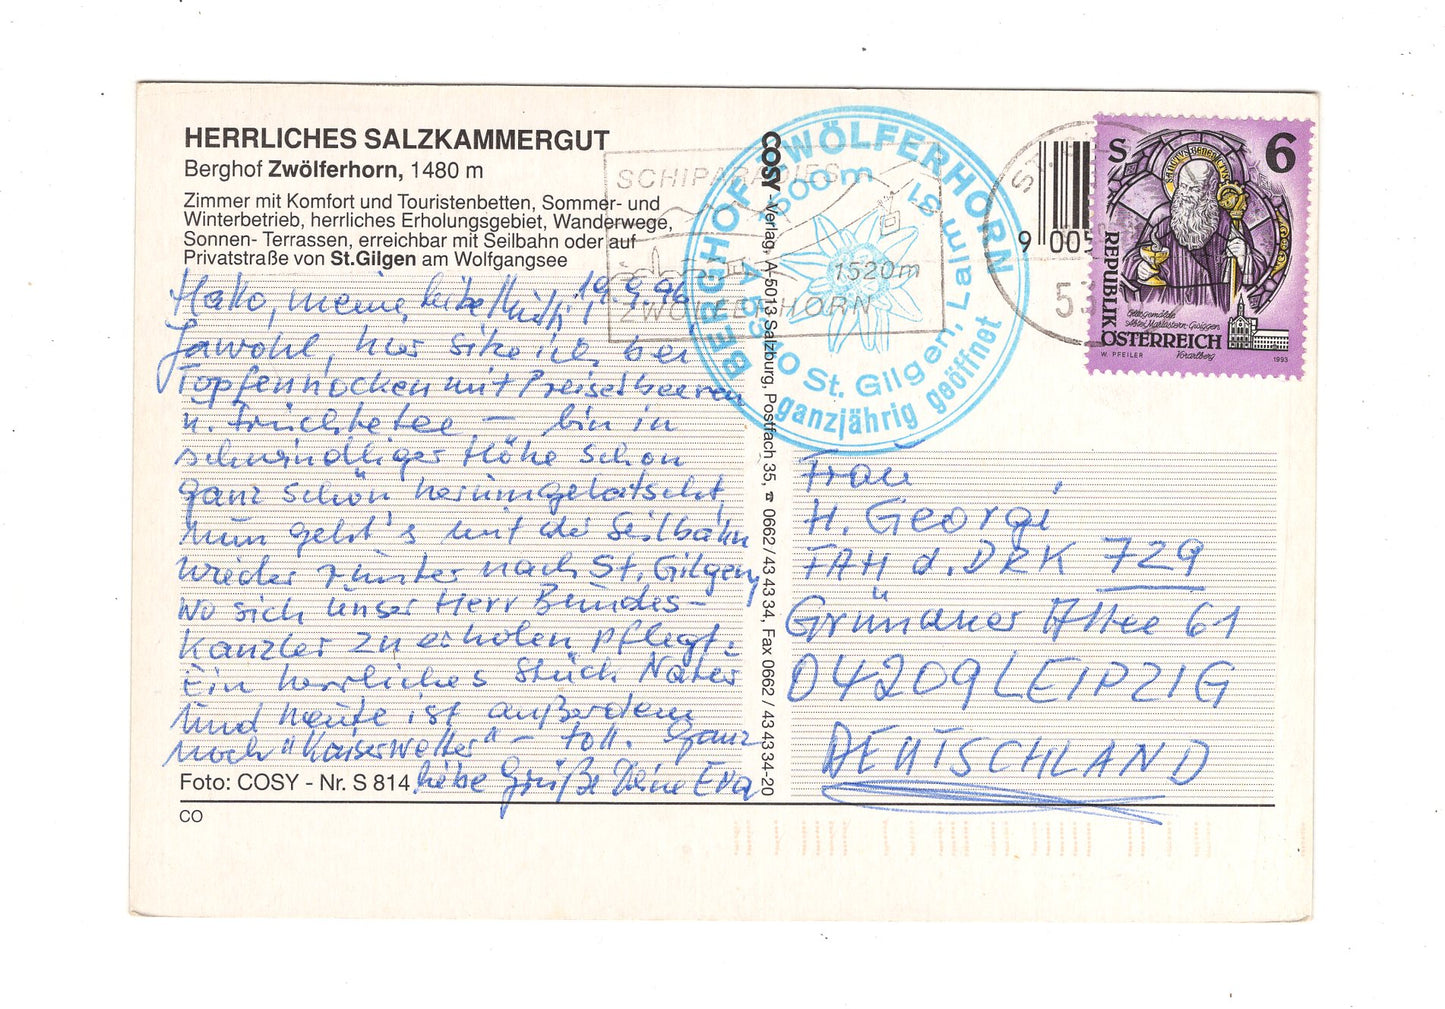 HERRLICHES SALZKAMMERGUT
Berghof Zwölferhorn, 1480 m
Zimmer mit Komfort und Touristenbetten, Sommer- und
Winterbetrieb, herrliches Erholungsgebiet, Wanderwege,
Sonnen- Terrassen, erreichbar mit Seilbahn oder auf
Privatstraße von St.Gilgen am Wolfgangsee
19.9.96
Hallo, meine liebe Mutti!
Jawohl, hier sitze ich bei
Topfennocken mit Preiselbeeren
u. Früchtetee – bin in
schwindliger Höhe schon
ganz schön herumgelatscht,
nun geht's mit der Seilbahn
wieder runter nach St. Gilgen,
wo sich unser Herr Bundes-
kanzler zu erholen pflegt.
Ein herrliches Stück Natur
und heute ist außerdem
noch "Kaiserwetter" – toll. Ganz
liebe Grüße Deine Eva
Foto: COSY - Nr. S 814
CO
COSY Verlag, A-5013 Salzburg, Postfach 35, ☎ 0662/43 43 34, Fax 0662/43 43 34-20
SCHIPARADIES
1520m
ZWÖLFERHORN
BERGHOF ZWÖLFERHORN
1500 m
St. Gilgen,
ganzjährig geöffnet
9 005
S 6
SANCTVS BENEDICTVS
REPUBLIK
ÖSTERREICH
Glasgemälde
Abtei Mariastern-Gwiggen
Vorarlberg
W. PFEILER
1993
Frau
H. Georgi
FAH d. DRK 729
Grünauer Allee 61
04209 LEIPZIG
DEUTSCHLAND